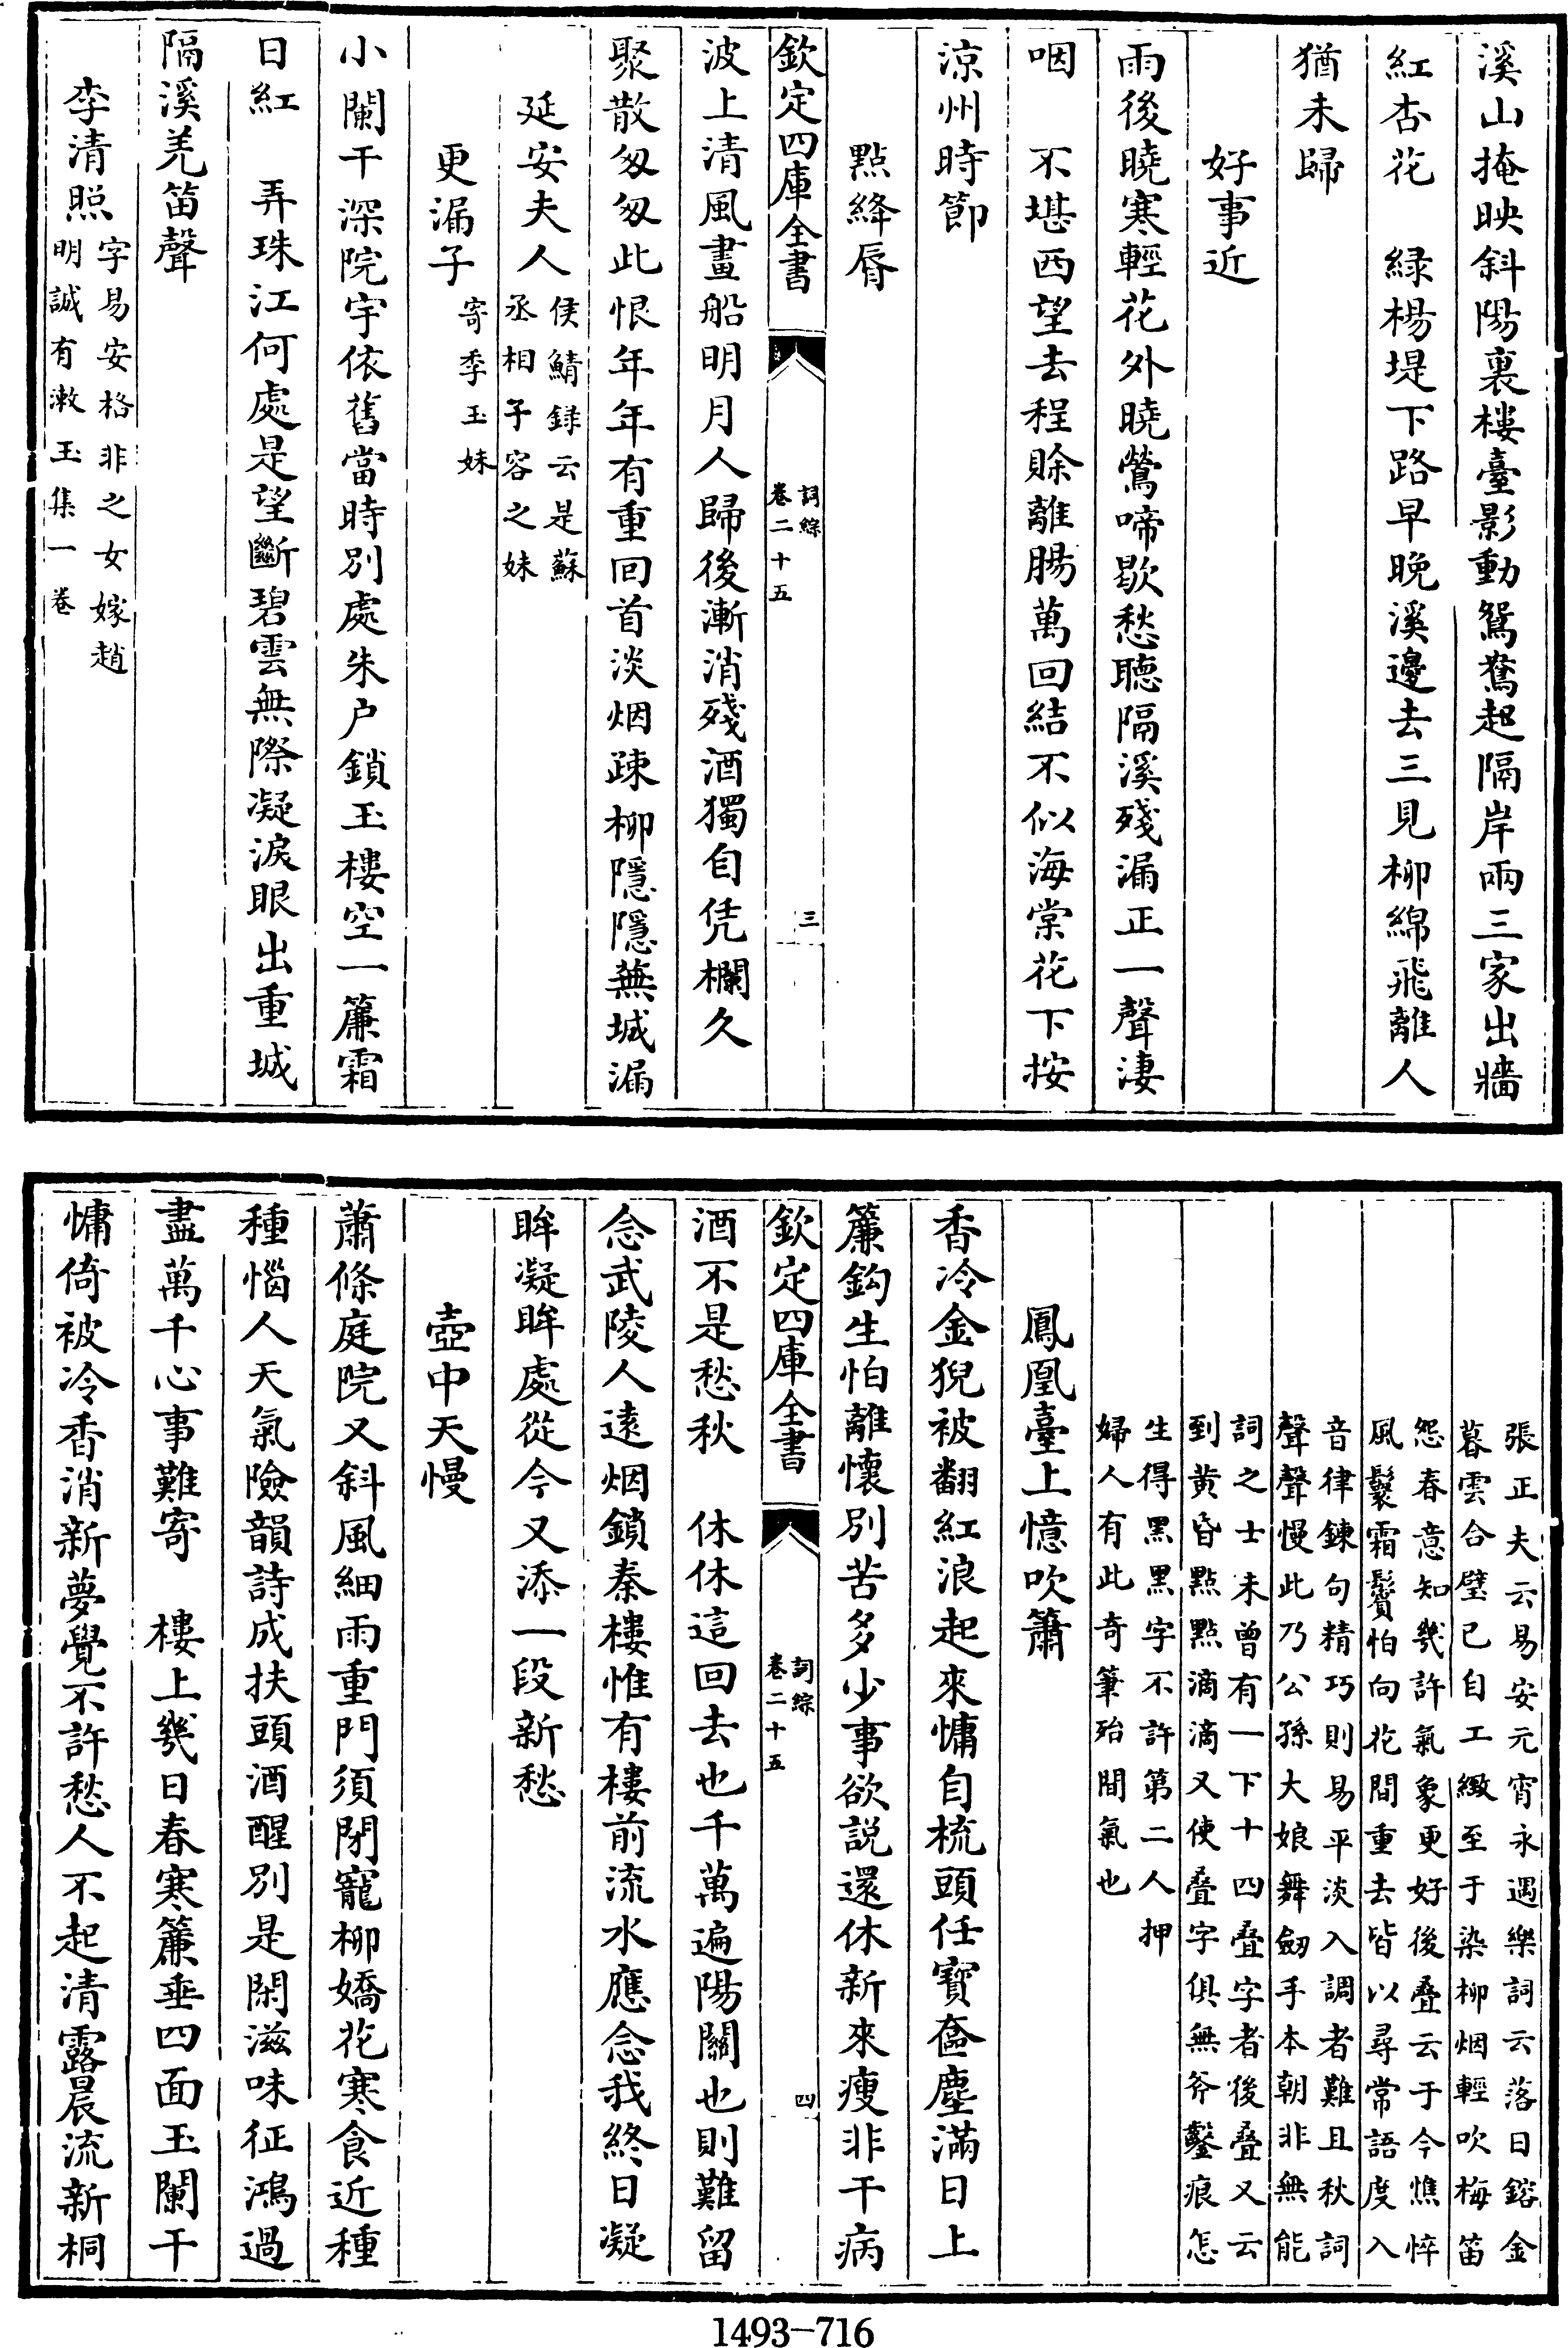 溪山掩映斜陽裏樓臺影動鴛鴦起隔岸兩三家出牆
紅杏花　緑楊堤下路早晚溪邊去三見柳綿飛離人
猶未歸
好事近
雨後曉寒輕花外曉鶯啼歇愁聽隔溪殘漏正一聲淒
咽　不堪西望去程賖離腸萬回結不似海棠花下按
涼州時節
點絳脣
欽定四庫全書
詞綜
卷二十五
三
波上清風畫船明月人歸後漸消殘酒獨自凭欄久
聚散匆匆此恨年年有重回首淡烟疎柳隱隱蕪城漏
延安夫人
侯鯖録云是蘇
丞相子容之妹
更漏子
寄季玉妹
小闌干深院宇依舊當時別處朱户鎖玉樓空一簾霜
日紅　弄珠江何處是望斷碧雲無際凝淚眼出重城
隔溪羌笛聲
李清照
字易安格非之女嫁趙
明誠有漱玉集一卷
張正夫云易安元宵永遇樂詞云落日鎔金
暮雲合璧已自工緻至于染柳烟輕吹梅笛
怨春意知幾許氣象更好後疊云于今憔悴
風鬟霜鬢怕向花間重去皆以尋常語度入
音律鍊句精巧則易平淡入調者難且秋詞
聲聲慢此乃公孫大娘舞劒手本朝非無能
詞之士未曾有一下十四疊字者後疊又云
到黄昏點點滴滴又使疊字俱無斧鑿痕怎
生得黑黑字不許第二人押
婦人有此奇筆殆間氣也
鳳凰臺上憶吹簫
香冷金猊被翻紅浪起來慵自梳頭任寳奩塵滿日上
簾鈎生怕離懷別苦多少事欲説還休新來瘦非干病
欽定四庫全書
詞綜
卷二十五
四
酒不是愁秋　休休這回去也千萬遍陽關也則難留
念武陵人遠烟鎖秦樓惟有樓前流水應念我終日凝
眸凝眸處從今又添一段新愁
壺中天慢
蕭條庭院又斜風細雨重門須閉寵柳嬌花寒食近種
種惱人天氣險韻詩成扶頭酒醒別是閑滋味征鴻過
盡萬千心事難寄　樓上幾日春寒簾垂四面玉闌干
慵倚被冷香消新夢覺不許愁人不起清露晨流新桐
1493—716